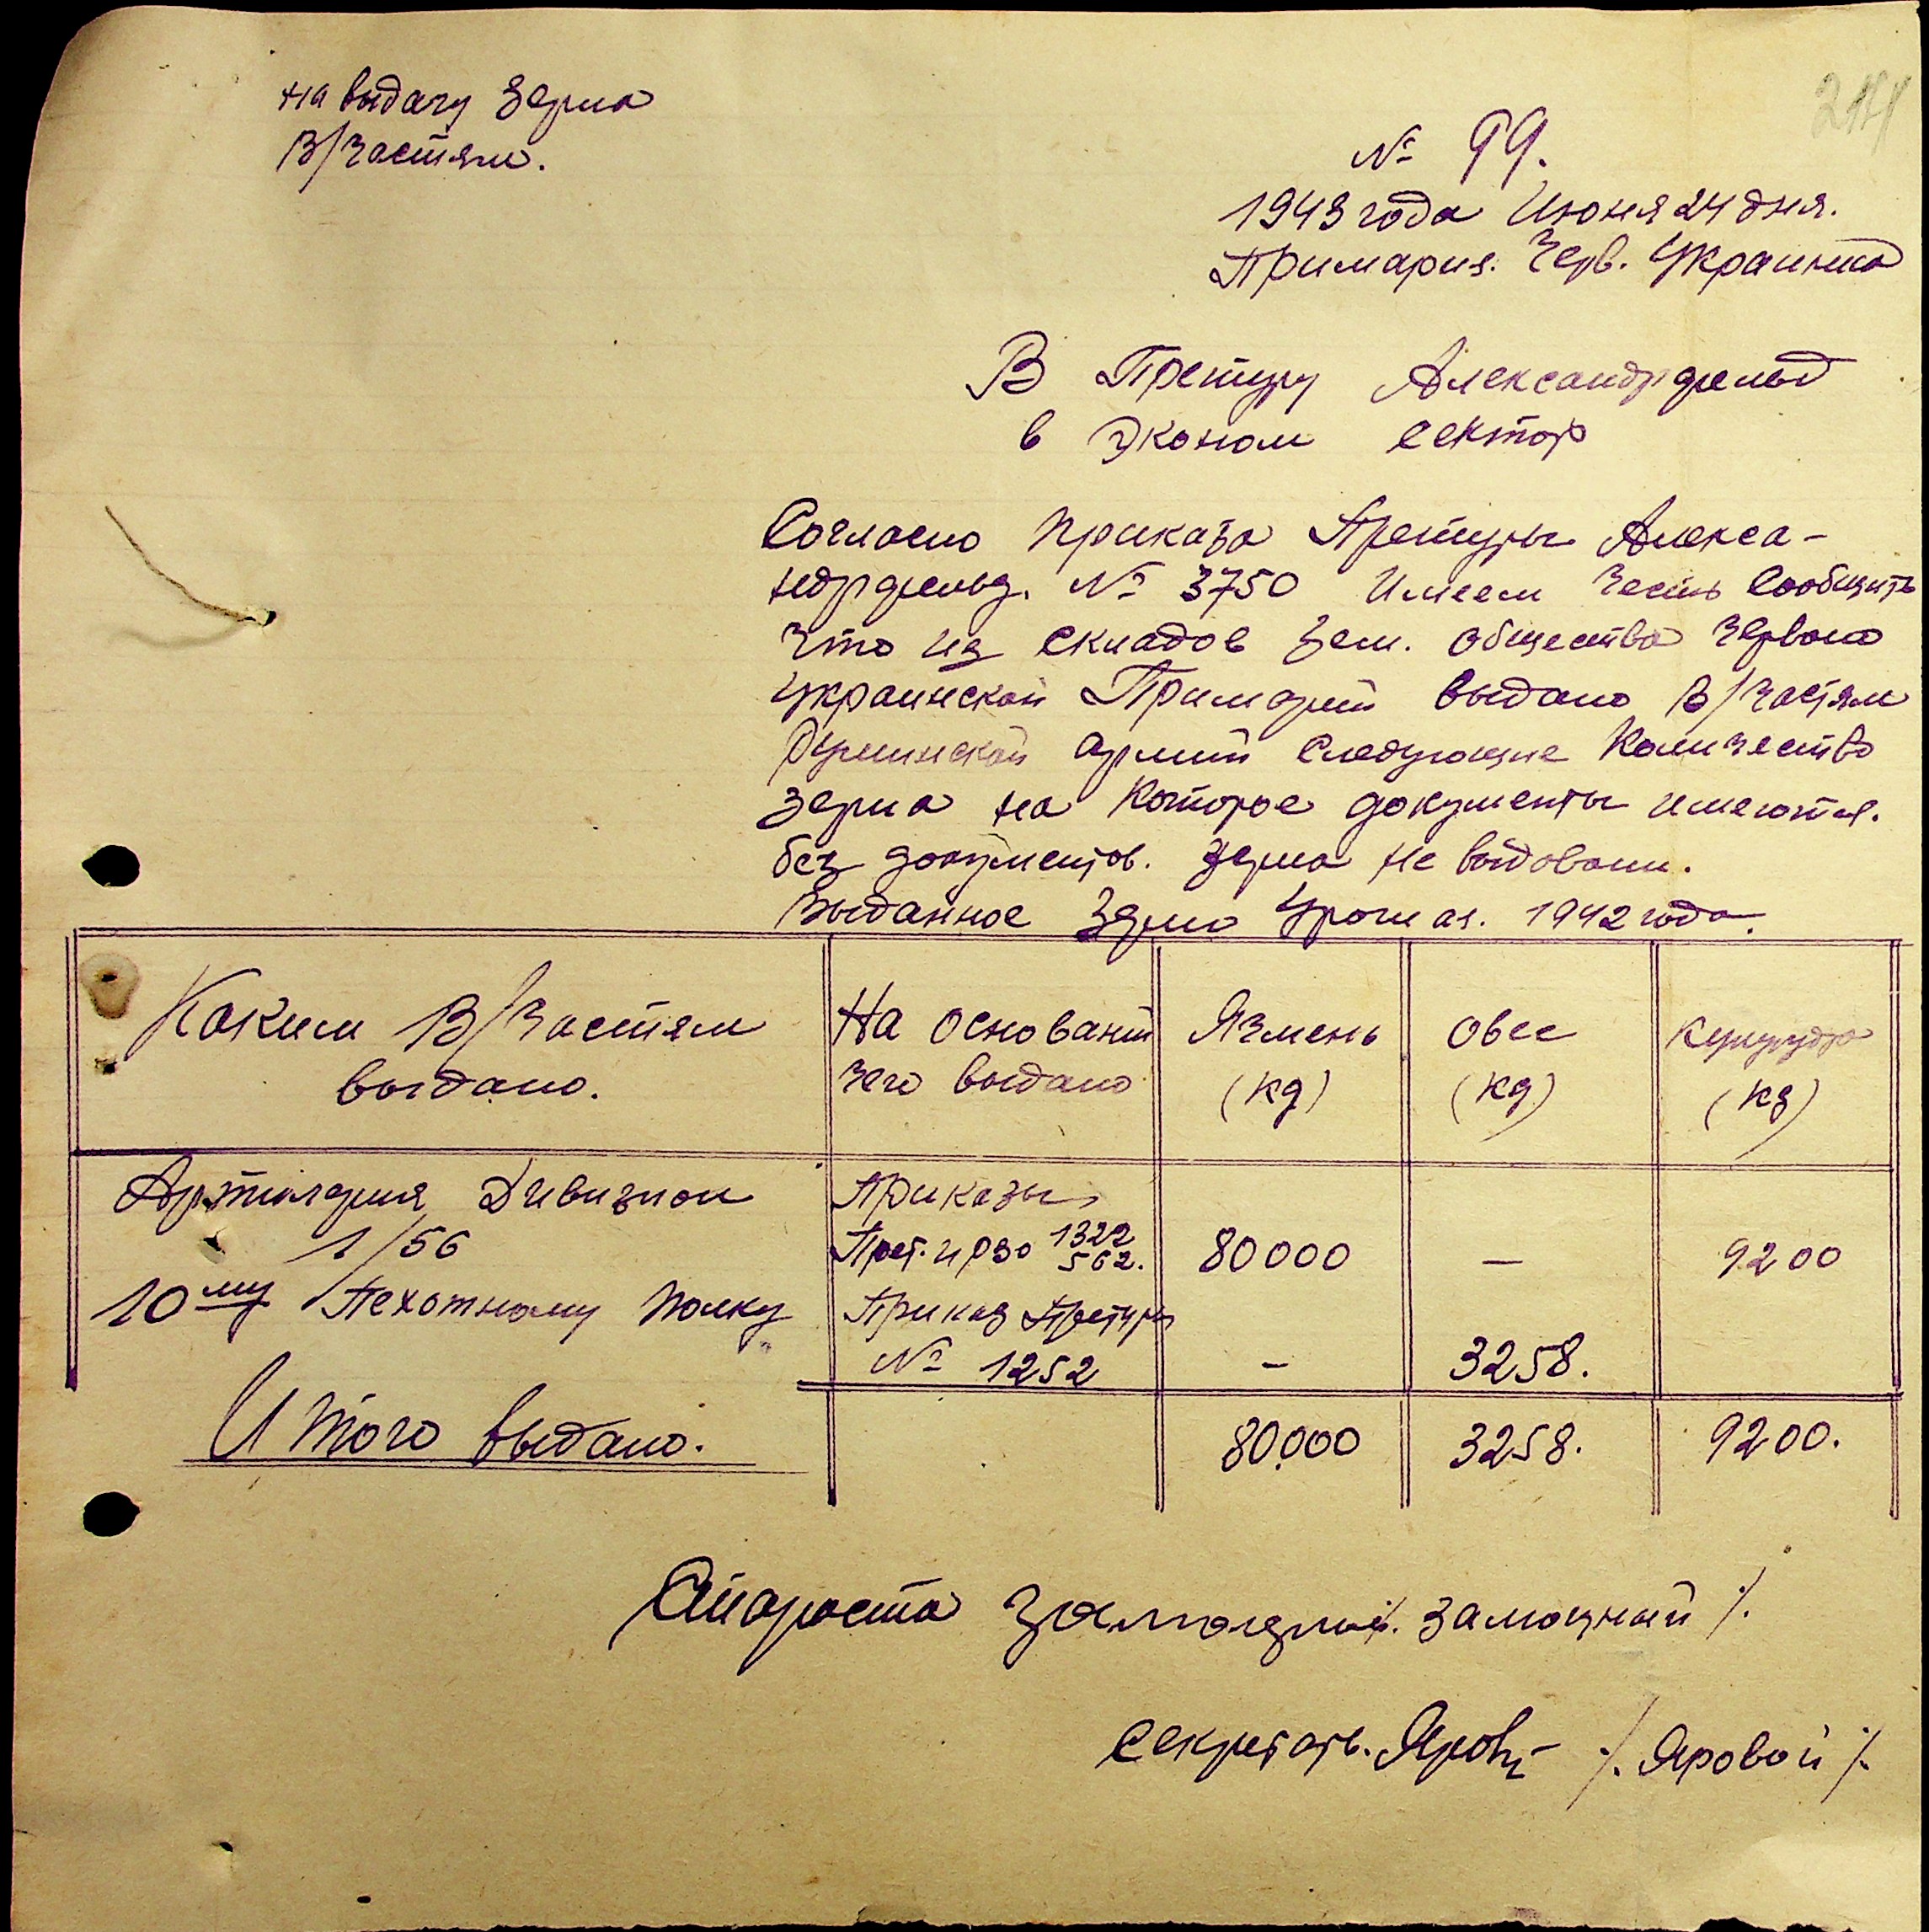 на выдачу Зерна
В/Частям.
№ 99.
1943 года Июня 24 дня.
Примария. Черв. Украинка
В Претуру Александрфельд
в Эконом сектор
Согласно приказа Претуры Алекса-
ндрфельд. № 3750 Имеем честь Сообщить
что из складов Зем. общества Червоно
Украинской Примарии выдано В/частям
Румынской армии Следующие Количество
зерна на Которое документы имеются.
без документов. зерна не выдовали.
Выданное Зерно Урожая. 1942 года.
Каким В/Частям
выдано.
На основании
чего выдано
Ячмень
(kg)
Овес
(kg)
Кукурудза
(kg)
Артилерия Дивизион
1/56
Приказы
Прет. и РЗО 1322
562.
80000
—
9200
10му Пехотному Полку
Приказ Претуры
№ 1252
—
3258.
Итого выдано.
80.000
3258.
9200.
Староста Замоцний /
Секретарь. Яровой /. Яровой /.